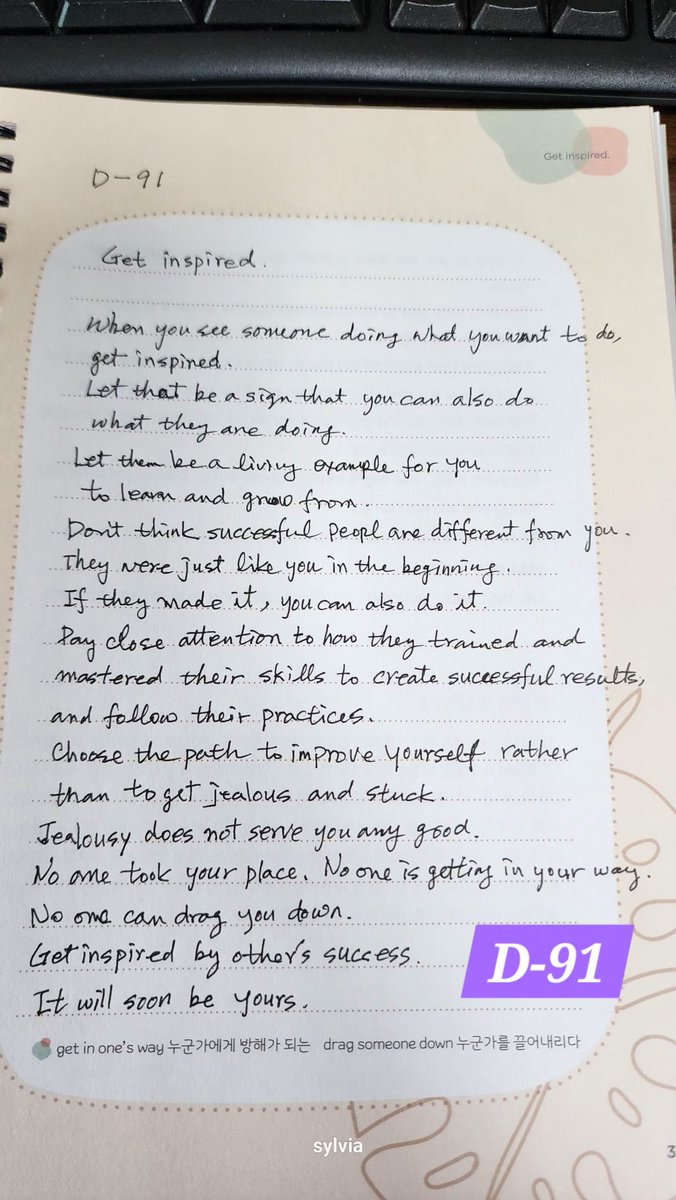 Get inspired.
D-91
Get inspired.
When you see someone doing what you want to do,
get inspired.
Let that be a sign that you can also do
what they are doing.
Let them be a living example for you
to learn and grow from.
Don't think successful peopl are different from you.
They were just like you in the beginning.
If they made it, you can also do it.
Pay close attention to how they trained and
mastered their skills to create successful results,
and follow their practices.
Choose the path to improve yourself rather
than to get jealous and stuck.
Jealousy does not serve you any good.
No one took your place. No one is getting in your way.
No one can drag you down.
Get inspired by other's success.
D-91
It will soon be yours.
get in one's way 누군가에게 방해가 되는 drag someone down 누군가를 끌어내리다
sylvia
3